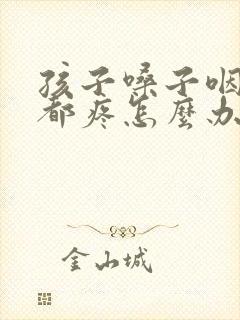 孩子嗓子咽
都疼怎麼办
金山城